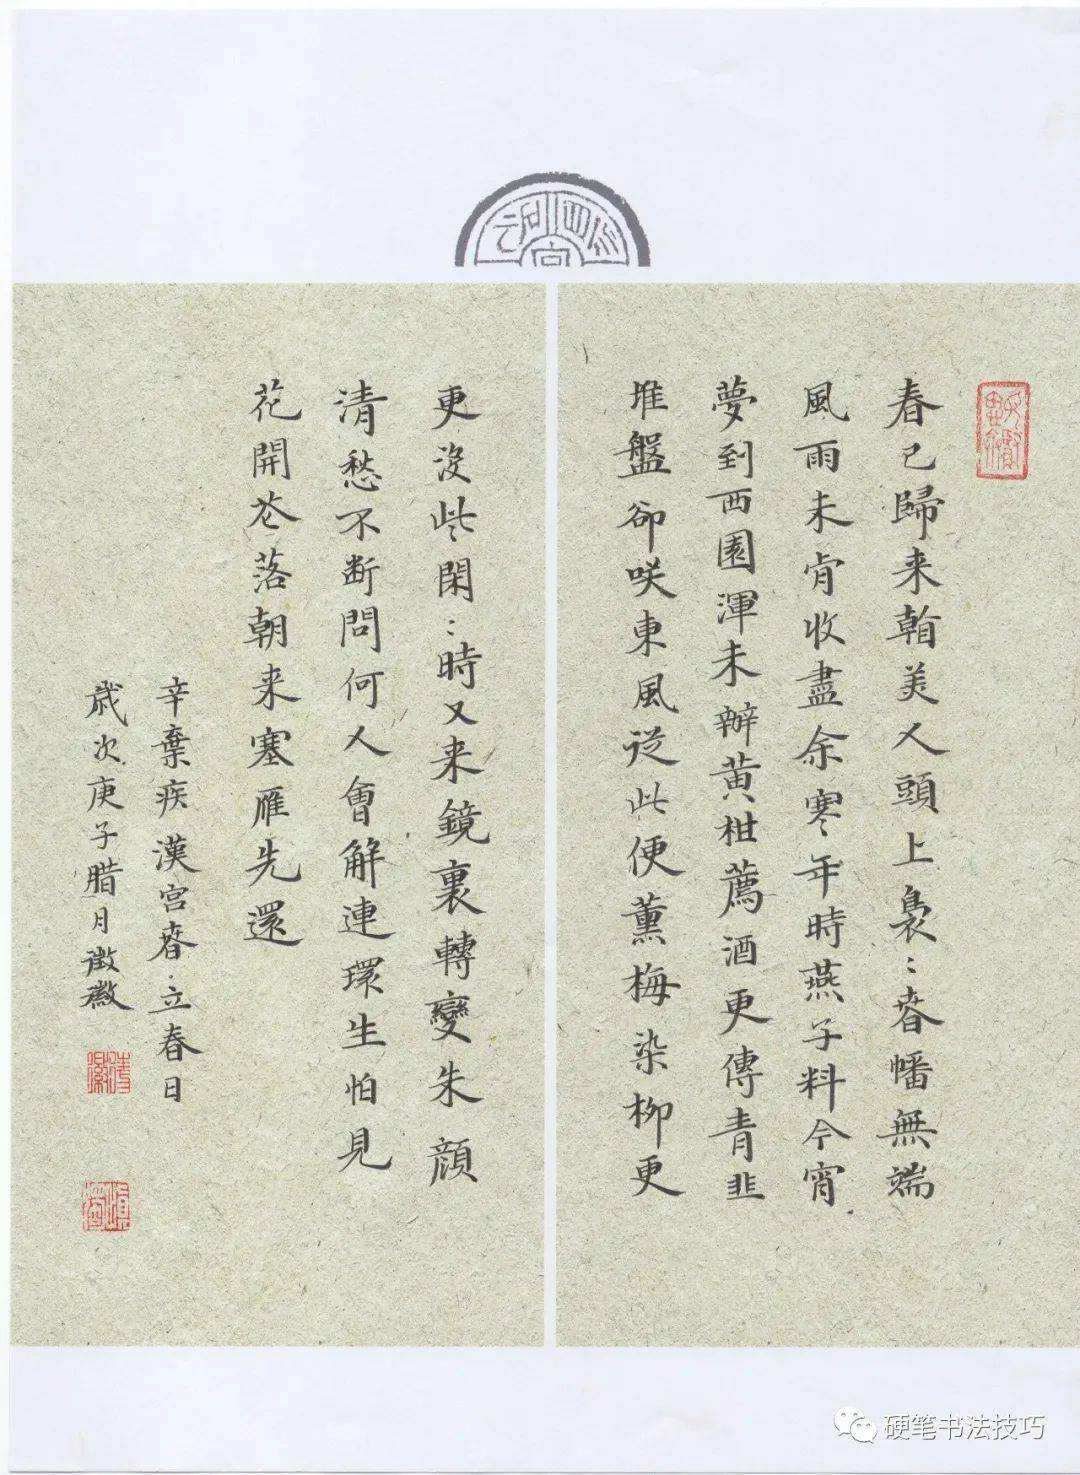 春已歸来翰美人頭上裊:春幡無端
風雨未肯收盡余寒年時燕子料今宵
夢到西園渾未辦黄柑薦酒更傳青韭
堆盤卻咲東風從此便薰梅染柳更
更沒些閑:時又来鏡裏轉變朱顔
清愁不断問何人會解連環生怕見
花開苍落朝来塞雁先還
辛棄疾漢宮春·立春日
歲次庚子腊月徵徽
硬笔书法技巧